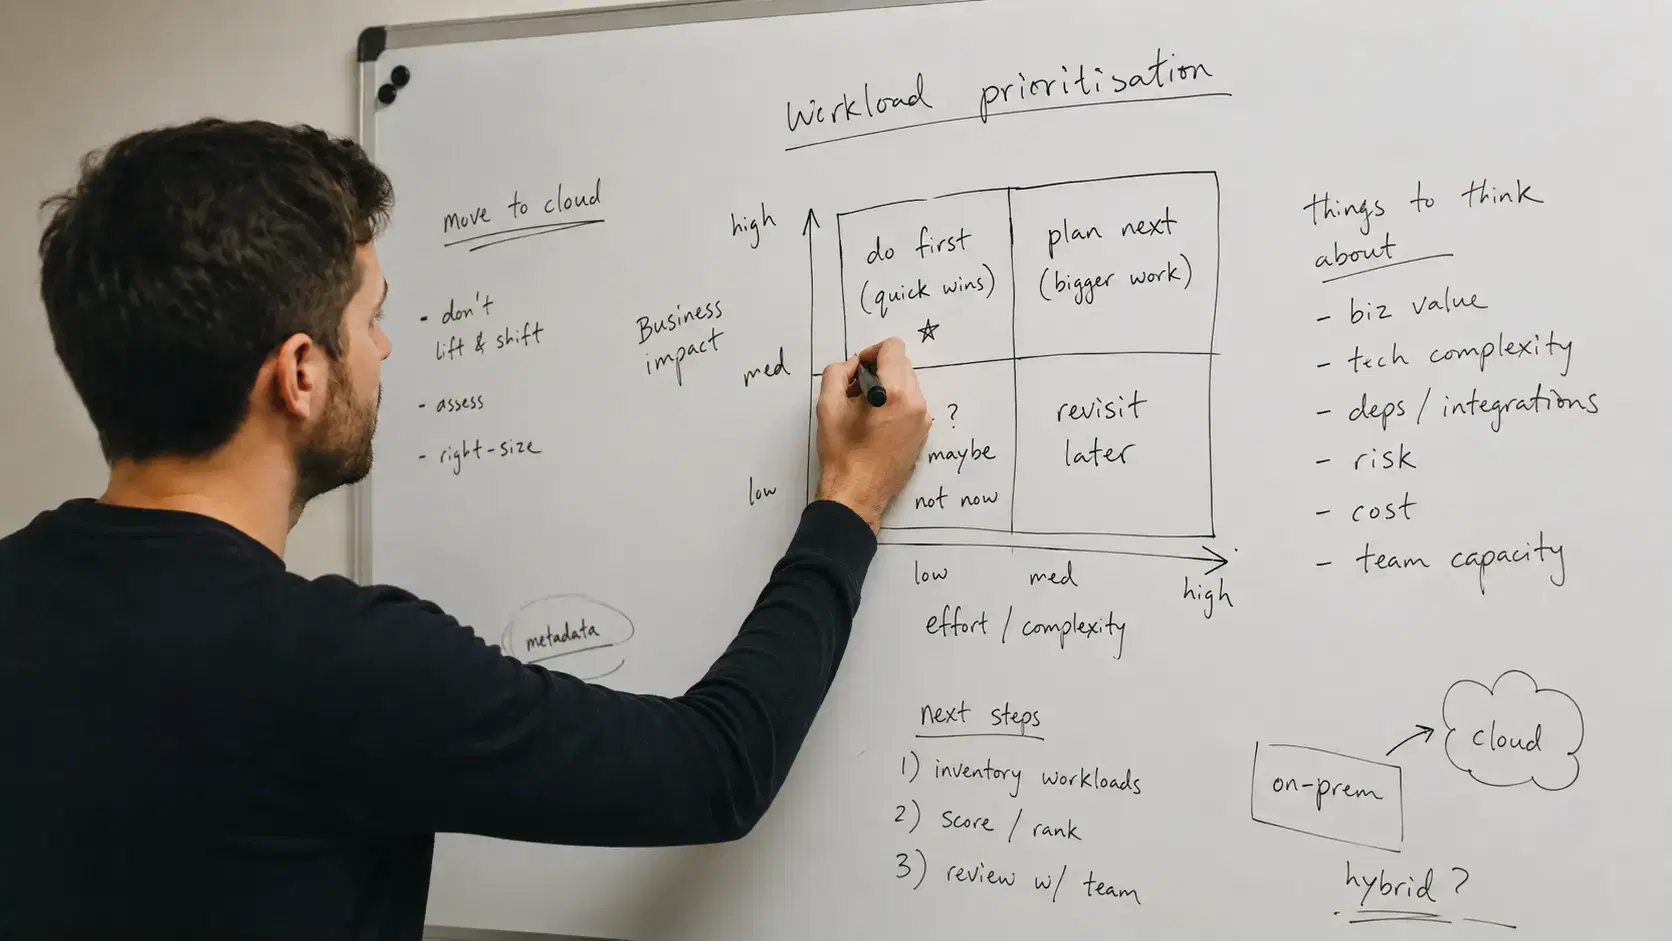 Workload prioritisation
move to cloud
- don't
lift & shift
- assess
- right-size
metadata
Business
impact
high
med
low
do first
(quick wins)
plan next
(bigger work)
?
maybe
not now
revisit
later
low
med
high
effort / complexity
things to think
about
- biz value
- tech complexity
- deps / integrations
- risk
- cost
- team capacity
next steps
1) inventory workloads
2) score / rank
3) review w/ team
on-prem
cloud
hybrid ?